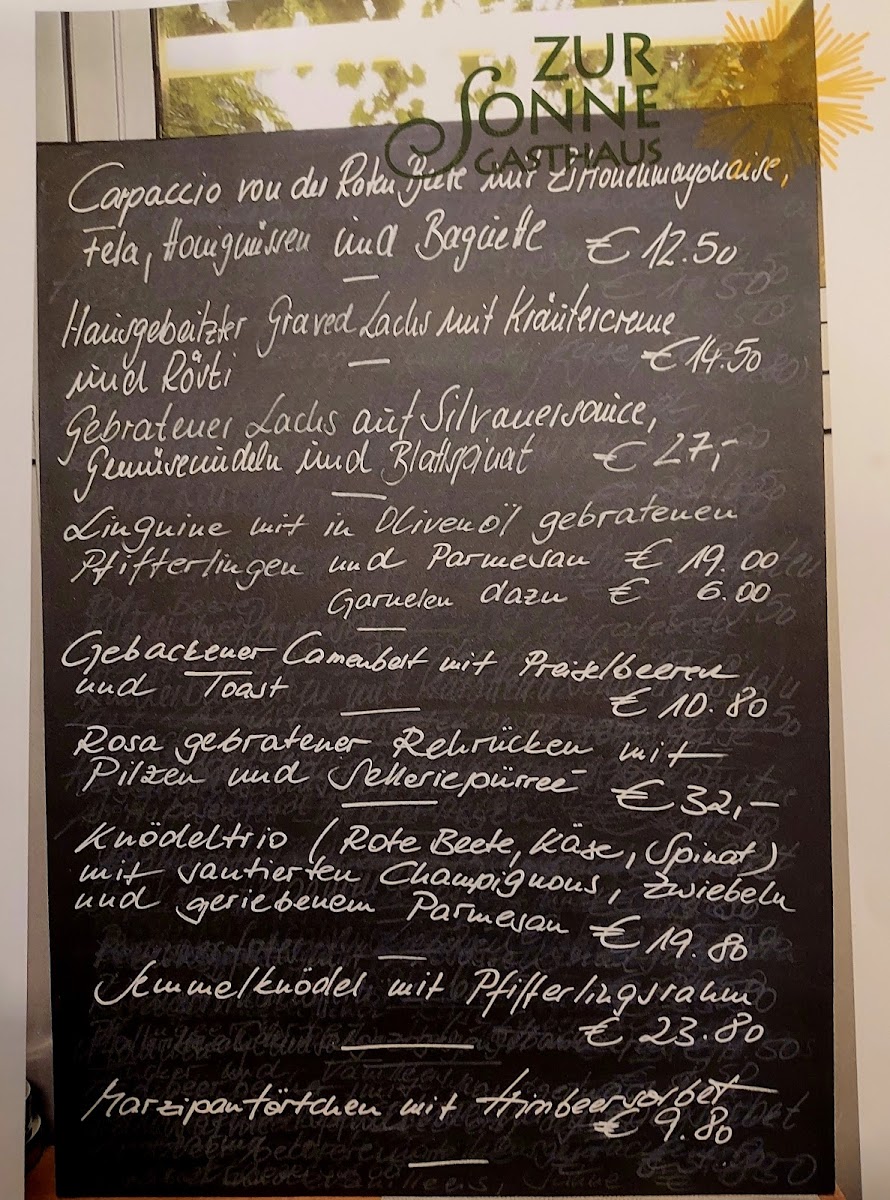 ZUR
SONNE
GASTHAUS
Carpaccio von der Roten Beete mit Zitronenmayonaise,
Feta, Honignüssen und Baguette € 12.50
Hausgebeitzter Graved Lachs mit Kräutercreme
und Rösti € 14.50
Gebratener Lachs auf Silvanersauce,
Gemüsenudeln und Blattspinat € 27,-
Linguine mit in Olivenöl gebratenen
Pfifferlingen und Parmesan € 19.00
Garnelen dazu € 6.00
Gebackener Camenbert mit Preiselbeeren
und Toast € 10.80
Rosa gebratener Rehrücken mit
Pilzen und Selleriepürree € 32,-
Knödeltrio (Rote Beete, Käse, Spinat)
mit sautierten Champignons, Zwiebeln
und geriebenem Parmesan € 19.80
Semmelknödel mit Pfifferlingsrahm
€ 23.80
Marzipantörtchen mit Himbeersorbet
€ 9.80